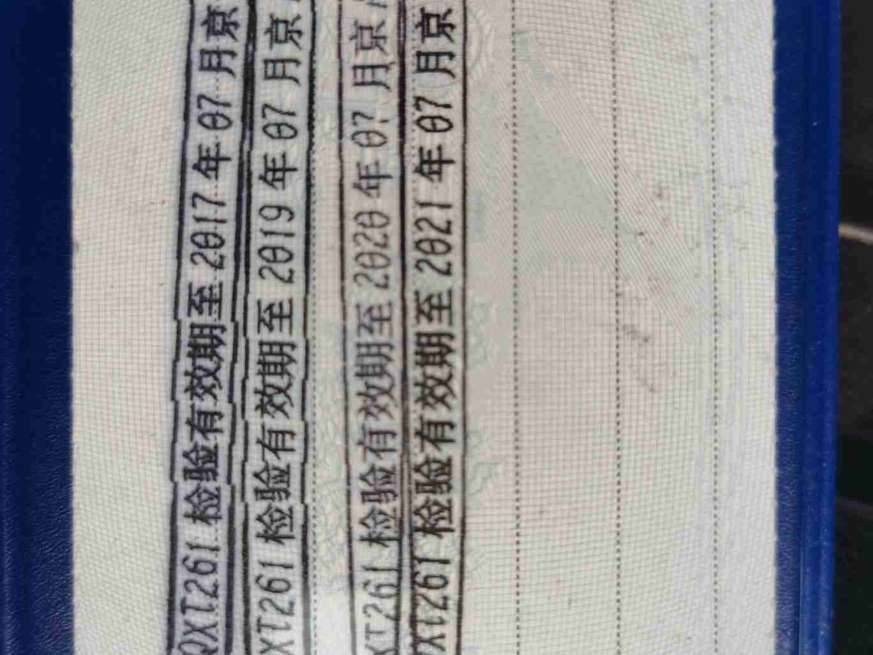 QXT261 检验有效期至 2017 年 07 月京
XT261 检验有效期至 2019 年 07 月京
XT261 检验有效期至 2020 年 07 月京
XT261 检验有效期至 2021 年 07 月京